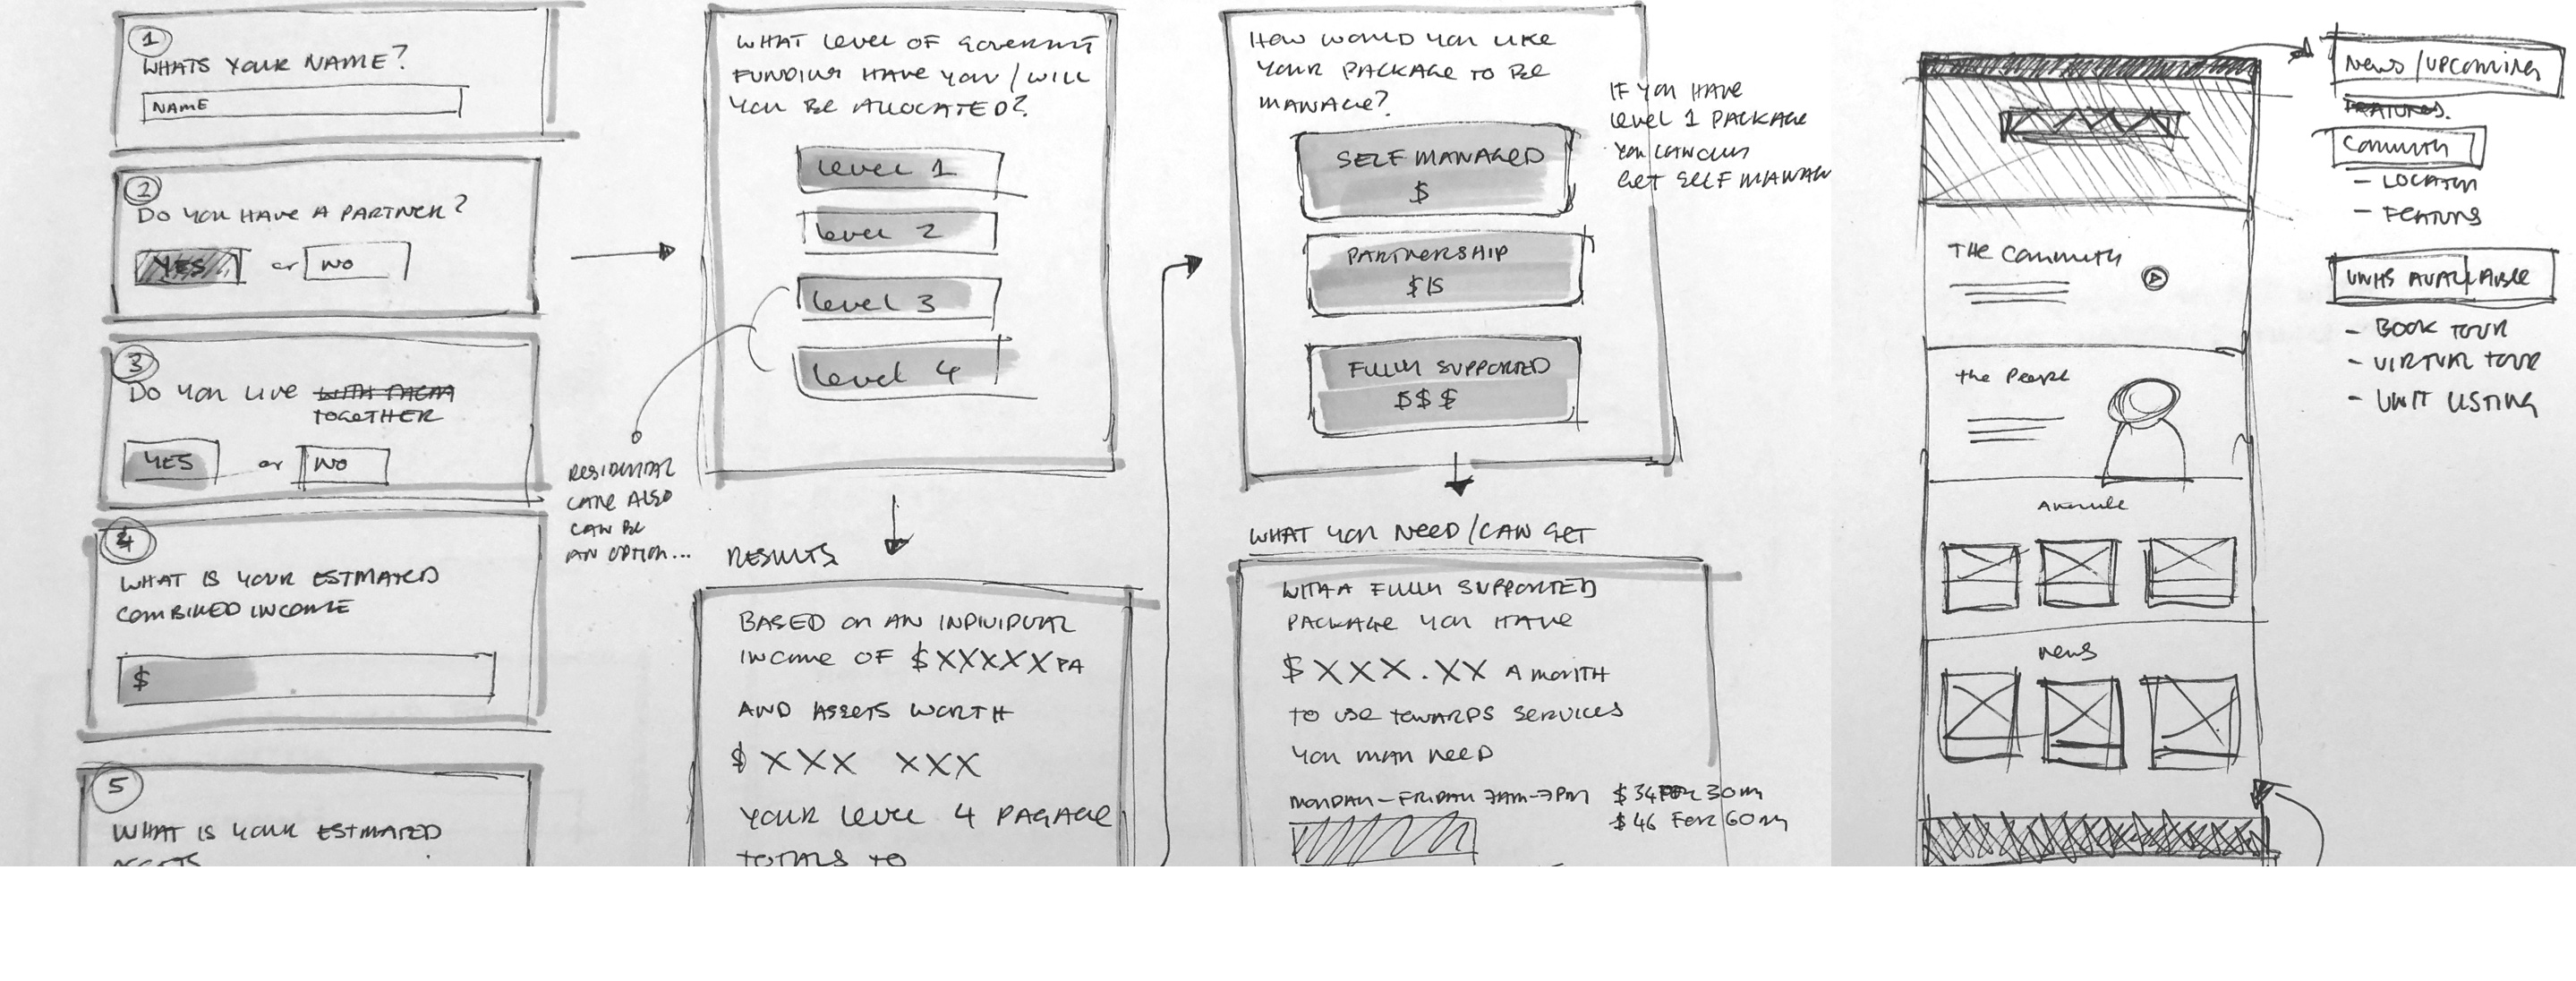 1
WHATS YOUR NAME?
NAME
2
DO YOU HAVE A PARTNER?
YES or NO
3
DO YOU LIVE WITH THEM
TOGETHER
YES or NO
4
WHAT IS YOUR ESTIMATED
COMBINED INCOME
$
5
WHAT IS YOUR ESTIMATED
ASSETS
WHAT LEVEL OF GOVERNMT
FUNDING HAVE YOU / WILL
YOU BE ALLOCATED?
Level 1
Level 2
Level 3
Level 4
RESIDENTIAL
CARE ALSO
CAN BE
AN OPTION...
RESULTS
BASED ON AN INDIVIDUAL
INCOME OF $XXXXX PA
AND ASSETS WORTH
$ XXX XXX
YOUR LEVEL 4 PAGAGE
TOTALS TO
HOW WOULD YOU LIKE
YOUR PACKAGE TO BE
MANAGE?
SELF MANAGED
$
PARTNERSHIP
FULLY SUPPORTED
$$$
IF YOU HAVE
LEVEL 1 PACKAGE
YOU CAN ONLY
GET SELF MANAG
WHAT YOU NEED / CAN GET
WITH A FULLY SUPPORTED
PACKAGE YOU HAVE
$ XXX.XX A MONTH
TO USE TOWARDS SERVICES
YOU MAY NEED
MONDAY - FRIDAY 7AM-7PM $34 FOR 30m
$46 FOR 60m
THE COMMUTY
THE PEOPLE
NEWS
NEWS / UPCOMING
FEATURES.
- FEATURS
UNITS AVAILABLE
- BOOK TOUR
- VIRTUAL TOUR
- UNIT LISTING